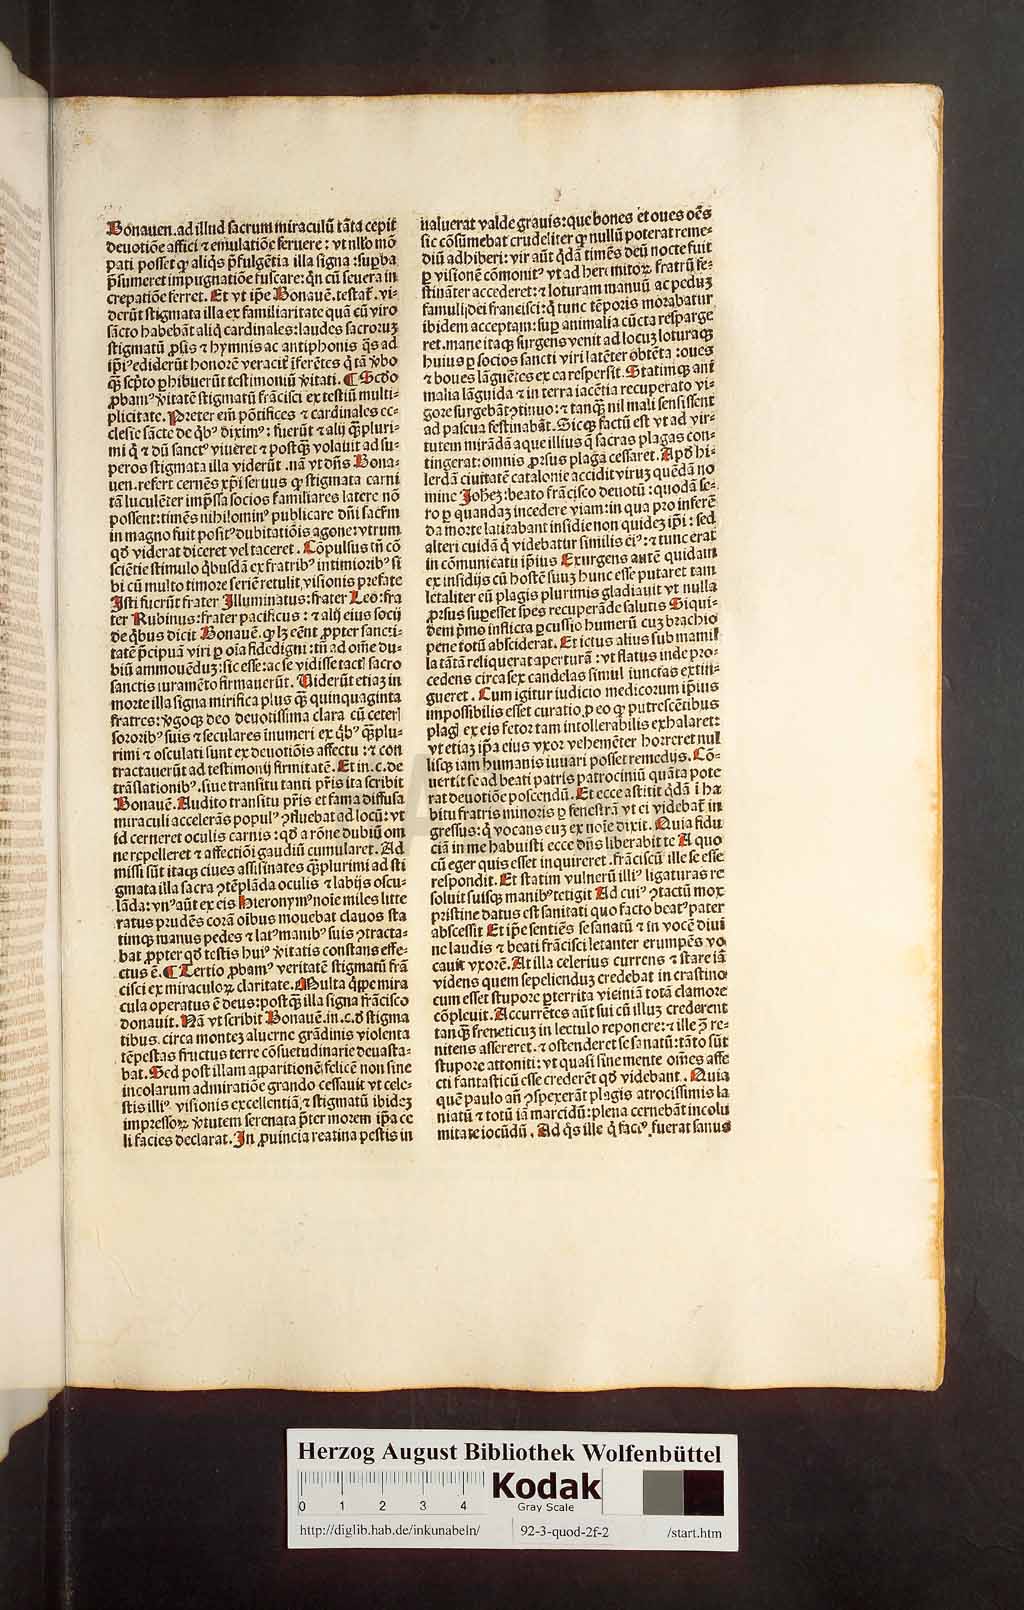 Bonauen. ad illud sacrum miraculū tāta cepit
deuotiōe affici ⁊ emulatiōe feruere: vt nllo mō
pati posset ꝙ aliqͥs p̄fulgētia illa signa: suꝑba
p̄sumeret impugnatiōe fuscare: qͥn cū seuera in
crepatiōe ferret. Et vt ip̄e Bonauē. testat̄. vi-
derūt stigmata illa ex familiaritate quā cū viro
sācto habebāt aliqͥ cardinales: laudes sacroruꝫ
stigmatū ꝓsis ⁊ hymnis ac antiphonis qͥs ad
ip̄iꝰ ediderūt honorē veracit̄ īferētes qͥ tā ꝟbo
qꝫ sc̄pto ꝑhibuerūt testimoniū ꝟitati. ¶ Scd̄o
ꝓbamꝰ ꝟitatē stigmatū frācisci ex testiū multi-
plicitate. Preter em̄ pōtifices ⁊ cardinales ec-
clesie sācte de qͥbꝰ diximꝰ: fuerūt ⁊ alij qꝫpluri-
mi qͥ ⁊ dū sanctꝰ viueret ⁊ postqꝫ volauit ad su-
peros stigmata illa viderūt. nā vt dn̄s Bona-
uen. refert cernēs xp̄i seruus ꝙ stigmata carni
tā luculēter imp̄ssa socios familiares latere nō
possent: timēs nihilominꝰ publicare dn̄i sacr̄m
in magno fuit positꝰ dubitatiōis agone: vtrum
qd̄ viderat diceret vel taceret. Cōpulsus tn̄ cō
sciētie stimulo qͥbusdā ex fratribꝰ intimioribꝰ si
bi cū multo timore seriē retulit visionis prefate
Isti fuerūt frater Illuminatus: frater Leo: fra
ter Rubinus: frater pacificus: ⁊ alij eius socij
de qͥbus dicit Bonauē. ꝙ lꝫ eēnt ꝓpter sancti-
tatē p̄cipuā viri ꝑ oīa fidedigni: tn̄ ad om̄e du-
biū ammouēduꝫ: sic esse: ac se vidisse tactꝭ sacro
sanctis iuramēto firmauerūt. Uiderūt etiaꝫ in
morte illa signa mirifica plus qꝫ quinquaginta
fratres: ꝟgoqꝫ deo deuotissima clara cū ceterꝭ
sororibꝰ suis ⁊ seculares inumeri ex qͥbꝰ qꝫplu-
rimi ⁊ osculati sunt ex deuotiōis affectu: ⁊ con
tractauerūt ad testimonij firmitatē. Et in. c. de
trāslationibꝰ. siue transitu tanti pr̄is ita scribit
Bonauē. Audito transitu pr̄is et fama diffusa
miraculi accelerās populꝰ ꝯfluebat ad locū: vt
id cerneret oculis carnis: qd̄ a rōne dubiū om
ne repelleret ⁊ affectiōi gaudiū cumularet. Ad
missi sūt itaqꝫ ciues assisinates qꝫplurimi ad sti
gmata illa sacra ꝯtēplāda oculis ⁊ labijs oscu-
lāda: vnꝰ aūt ex eis Hieronymꝰ noīe miles litte
ratus prudēs corā oībus mouebat clauos sta
timqꝫ manus pedes ⁊ latꝰ manibꝰ suis ꝯtracta-
bat ꝓpter qd̄ testis huiꝰ ꝟitatis constans effe-
ctus ē. ¶ Tertio ꝓbamꝰ veritatē stigmatū frā
cisci ex miraculoꝝ claritate. Multa qͥppe mira
cula operatus ē deus: postqꝫ illa signa frācisco
donauit. Nā vt scribit Bonauē. in. c. d̄ stigma
tibus. circa monteꝫ aluerne grādinis violenta
tēpestas fructus terre cōsuetudinarie deuasta-
bat. Sed post illam apparitionē felicē non sine
incolarum admiratiōe grando cessauit vt cele-
stis illiꝰ visionis excellentiā ⁊ stigmatū ibideꝫ
impressoꝝ ꝟtutem serenata p̄ter morem ip̄a ce
li facies declarat. In ꝓuincia reatina pestis in
ualuerat valde grauis: que boues et oues oēs
sic cōsūmebat crudeliter ꝙ nullū poterat reme-
diū adhiberi: vir aūt qͥdā timēs deū nocte fuit
ꝑ visionē cōmonitꝰ vt ad heremitoꝝ fratrū fe-
stināter accederet: ⁊ loturam manuū ac peduꝫ
famuli dei francisci: qͥ tunc tēporis morabatur
ibidem acceptam: suꝑ animalia cūcta resparge
ret. mane itaqꝫ surgens venit ad locuꝫ loturaqꝫ
huius ꝑ socios sancti viri latēter obtēta: oues
⁊ boues lāguētes ex ea respersit. Statimqꝫ ani
malia lāguida ⁊ in terra iacētia recuperato vi-
gore surgebāt ꝯtinuo: ⁊ tanqꝫ nil mali sensissent
ad pascua festinabāt. Sicqꝫ factū est vt ad vir-
tutem mirādā aque illius qͥ sacras plagas con-
tingerat: omnis ꝓrsus plaga cessaret. Apd̄ hi-
lerdā ciuitatē catalonie accidit viruꝫ quēdā no
mine Joheꝫ: beato frācisco deuotū: quodā se-
ro ꝑ quandaꝫ incedere viam: in qua pro inferē
da morte latitabant insidie non quideꝫ ip̄i: sed
alteri cuidā qͥ videbatur similis eiꝰ: ⁊ tunc erat
in cōmunicatu ip̄ius Exurgens autē quidam
ex insidijs cū hostē suuꝫ hunc esse putaret tam
letaliter eū plagis plurimis gladiauit vt nulla
ꝓrsus suꝑesset spes recuperāde salutis Siqui-
dem p̄mo inflicta ꝑcussio humerū cuꝫ brachio
pene totū absciderat. Et ictus alius sub mamil
la tātā reliquerat aperturā: vt flatus inde pro-
cedens circa sex candelas simul iunctas extin-
gueret. Cum igitur iudicio medicorum ip̄ius
impossibilis esset curatio ꝓ eo ꝙ putrescētibus
plagꝭ ex eis fetor tam intollerabilis exhalaret:
vt etiaꝫ ip̄a eius vxor vehemēter horreret nul
lisqꝫ iam humanis iuuari posset remedijs. Cō-
uertit se ad beati patris patrociniū quāta pote
rat deuotiōe poscendū. Et ecce astitit qͥdā ī ha
bitu fratris minoris ꝑ fenestrā vt ei videbat̄ in
gressus: qͥ vocans euꝫ ex noīe dixit. Quia fidu
ciā in me habuisti ecce dn̄s liberabit te A quo
cū eger quis esset inquireret. frāciscū ille se esse
respondit. Et statim vulnerū illiꝰ ligaturas re
soluit suisqꝫ manibꝰ tetigit Ad cuiꝰ ꝯtactū mox
pristine datus est sanitati quo facto beatꝰ pater
abscessit Et ip̄e sentiēs se sanatū ⁊ in vocē diui
ne laudis ⁊ beati frācisci letanter erumpēs vo
cauit vxorē. At illa celerius currens ⁊ stare iā
videns quem sepelienduꝫ credebat in crastino
cum esset stupore ꝑterrita viciniā totā clamore
cōpleuit. Accurrētes aūt sui cū illuꝫ crederent
tanqꝫ freneticuꝫ in lectulo reponere: ⁊ ille ꝯ̄ re-
nitens assereret. ⁊ ostenderet se sanatū: tāto sūt
stupore attoniti: vt quasi sine mente om̄es affe
cti fantasticū esse crederēt qd̄ videbant. Quia
quē paulo an̄ ꝯspexerāt plagis atrocissimis la
niatū ⁊ totū iā marcidū: plena cernebāt incolu
mitate iocūdū. Ad qͥs ille qͥ faciꝰ fuerat sanus
Herzog August Bibliothek Wolfenbüttel
0 1 2 3 4
Kodak
Gray Scale
http://diglib.hab.de/inkunabeln/ 92-3-quod-2f-2 /start.htm